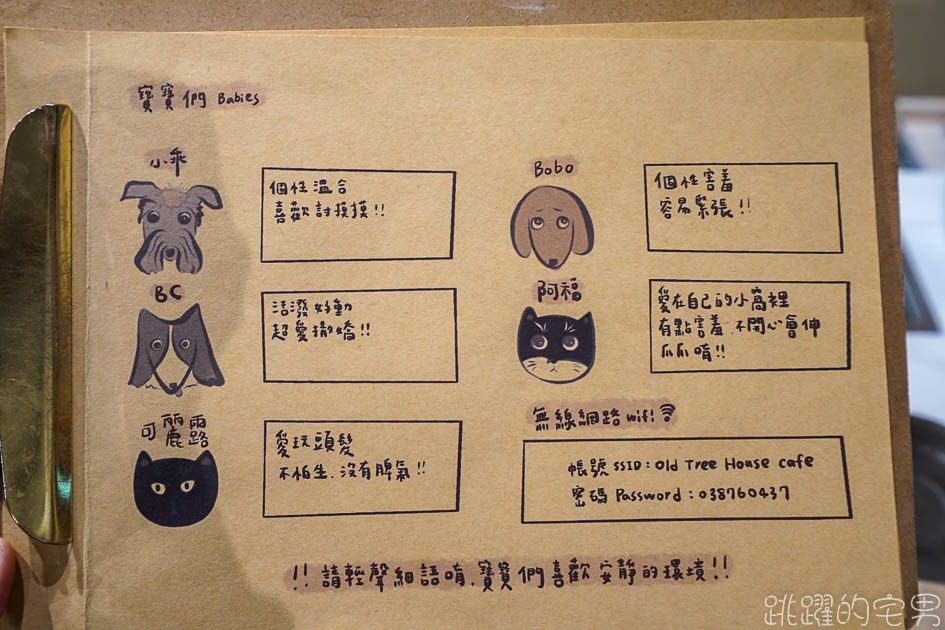 寶寶們 Babies
小乖
個性溫合
喜歡討摸摸!!
BC
活潑好動
超愛撒嬌!!
可麗露
愛玩頭髮
不怕生.沒有脾氣!!
Bobo
個性害羞
容易緊張!!
阿福
愛在自己的小窩裡
有點害羞.不開心會伸
爪爪唷!!
無線網路 wifi
帳號 SSID:Old Tree House cafe
密碼 Password:038760437
!!請輕聲細語唷.寶寶們喜歡安靜的環境!!
跳躍的宅男